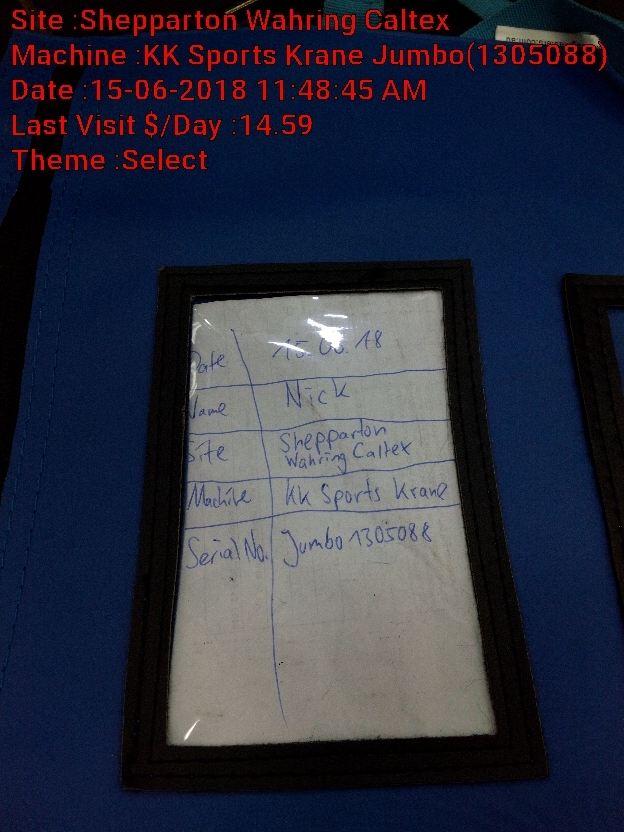 Site :Shepparton Wahring Caltex
Machine :KK Sports Krane Jumbo(1305088)
Date :15-06-2018 11:48:45 AM
Last Visit $/Day :14.59
Theme :Select
Date 15.06.18
Name Nick
Site Shepparton
Wahring Caltex
Machine KK Sports Krane
Serial No. Jumbo 1305088